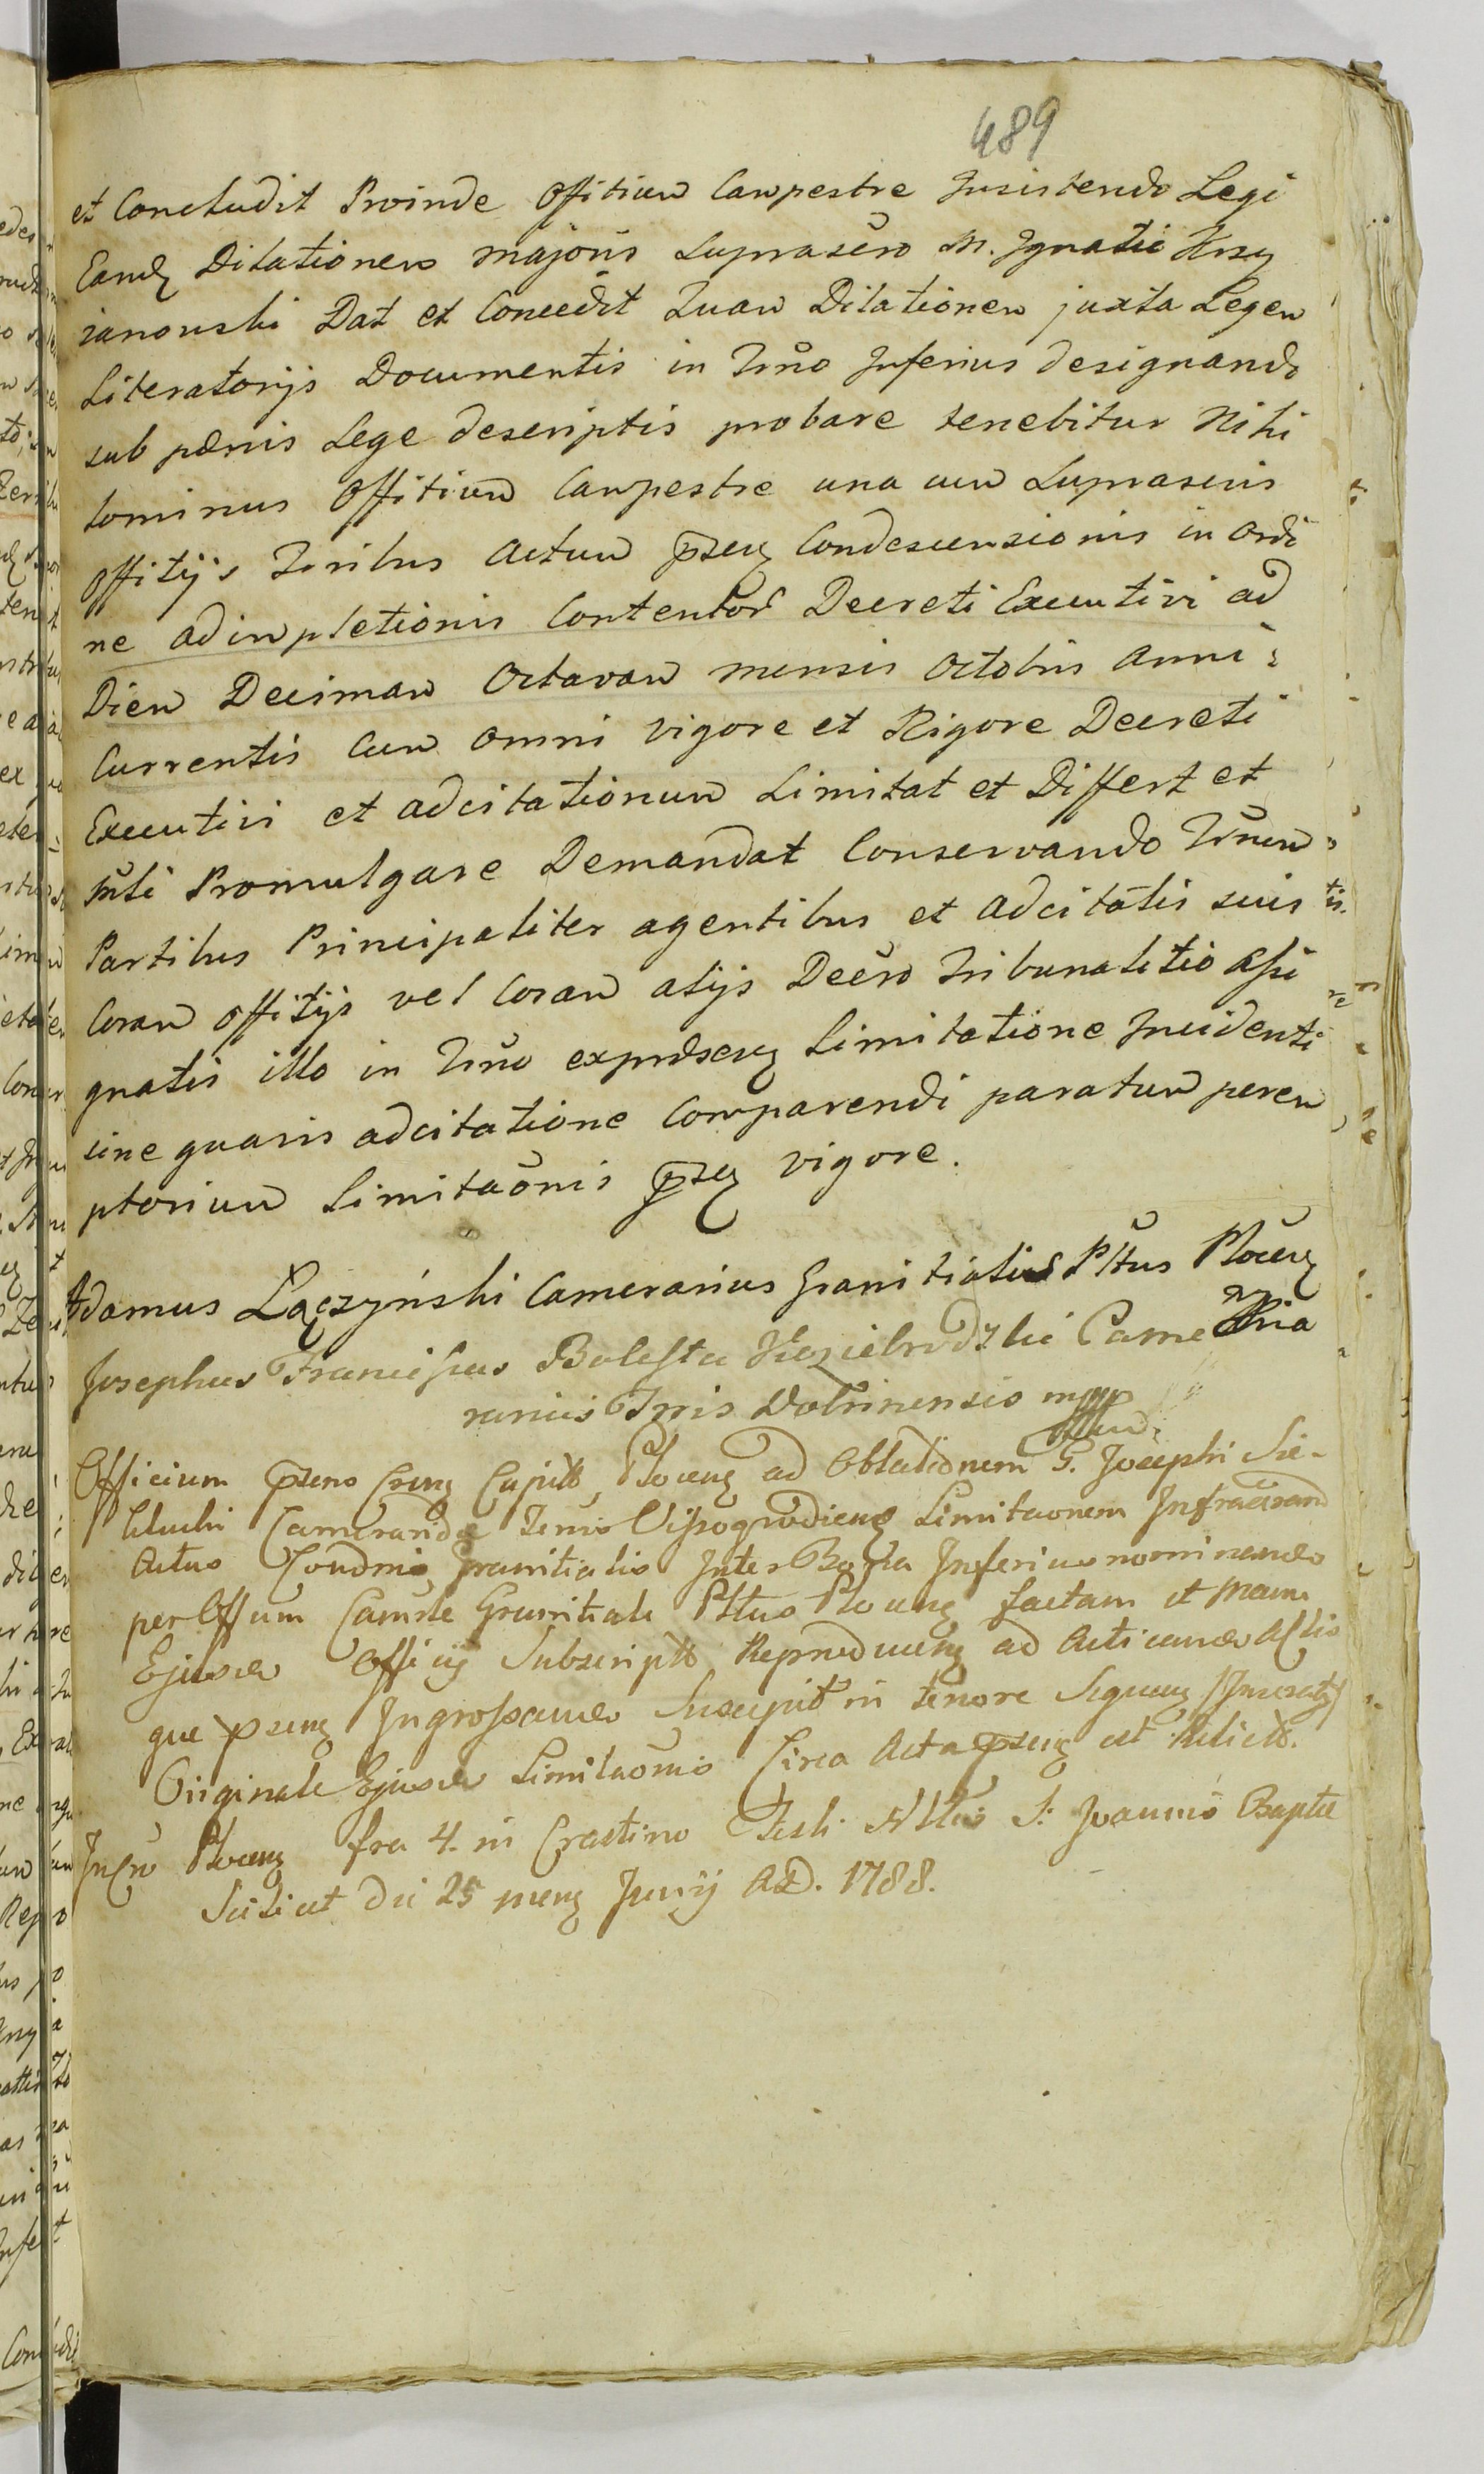 489
et Concludit Proinde Offitium Campestre Insistendo Legi
Eandꝫ Dilationem majoris Suprascro M. Ignatio Krzy
zanowski Dat et Concedit Quam Dilationem juxta Legem
Literatorijs Documentis in Trno Inferius designando
sub pœnis Lege descriptis probare tenebitur Nihi
lominus Offitium Campestre una cum Suprascris
Offitijs Juribus Actum p̄seꝫ Condescensionis in Ordi
ne adimpletionis Contentor Decreti Executivi ad
Diem Decimam Octavam mensis Octobris Anni
Currentis Cum Omni vigore et Rigore Decreti
Executivi et adcitationum Limitat et Differt et
Msti Promulgare Demandat Conservando Trnum
Partibus Principaliter agentibus et adcitatis suis
Coram Offitijs vel Coram alijs Decro Tribunalitio Assi
gnatis illo in Trno expressꝫ Limitatione Incidenti
sine quavis adcitatione Comparendi paratum perem
ptorium Limitaonis p̄seꝫ vigore.
Adamus Lączyński Camerarius Granitialis Pltus Plocenꝫ
Josephus Franciscus Bolesta Koziebrodzki Came
rarius Trris Dobrinensis mpp
Officium p̄sens Crenꝫ Capitt, Plocenꝫ ad Oblationem G. Josephi Sie-
Camerandæ Terræ Vissogrodienꝫ Limitaonem Infrascrand
Actus Condnis Granitialis Inter Bona Inferius nominanda
per Offum Cample Granitiale Pltus Plocenꝫ factam et manu
Ejusdem Officij Subscriptt Reproducenꝫ ad Acticand Actis
que p̄senꝫ Ingrossand Suscepit in tenore Sequenꝫ /Inseratꝫ/
Originale Ejusdem Limitaonis Circa Acta p̄senꝫ est Relictt.
In Cro Plocenꝫ fra 4. in Crastino Festi Nttis S: Joannis Baptæ
Scilicet die 25 menꝫ Junij A.D. 1788.